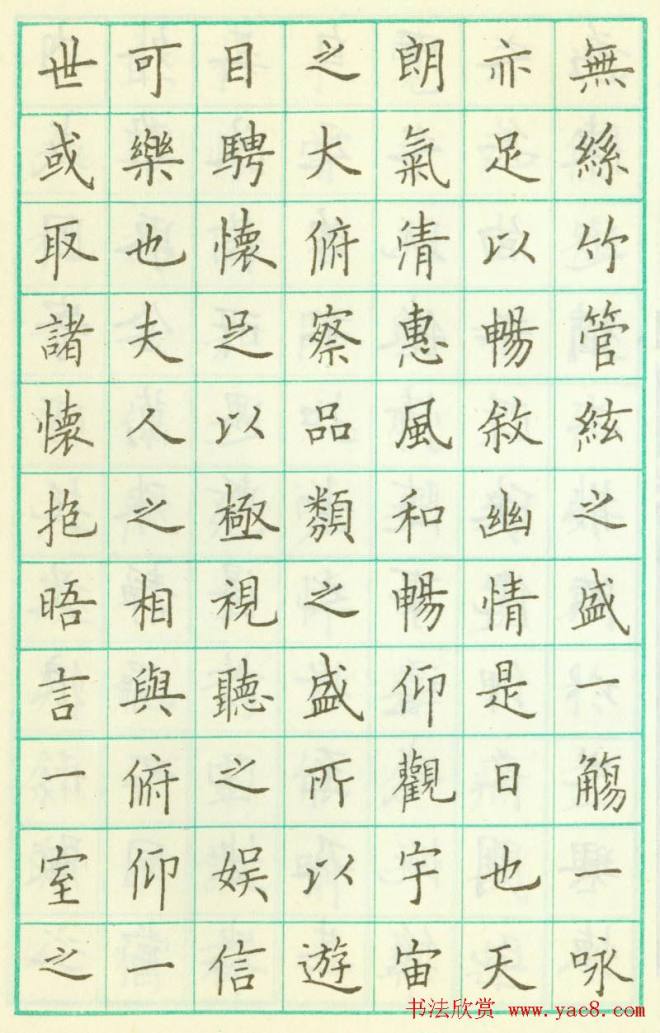 無絲竹管絃之盛一觴一咏
亦足以暢敘幽情是日也天
朗氣清惠風和暢仰觀宇宙
之大俯察品類之盛所以遊
目騁懷足以極視聽之娱信
可樂也夫人之相與俯仰一
世或取諸懷抱晤言一室之
书法欣赏 www.yac8.com